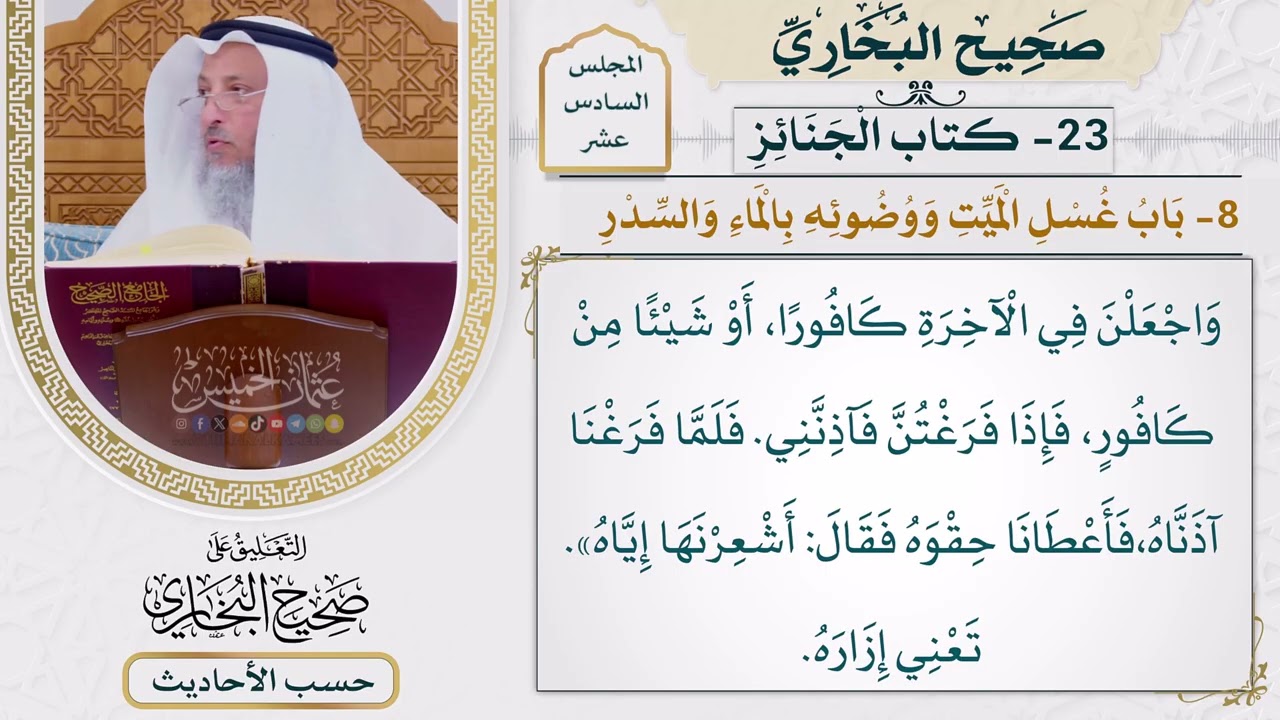 صَحِيح البُخَارِيِّ
المجلس
السادس
عشر
23- كتاب الْجَنَائِزِ
8- بَابُ غُسْلِ الْمَيِّتِ وَوُضُوئِهِ بِالْمَاءِ وَالسِّدْرِ
وَاجْعَلْنَ فِي الْآخِرَةِ كَافُورًا، أَوْ شَيْئًا مِنْ
كَافُورٍ، فَإِذَا فَرَغْتُنَّ فَآذِنَّنِي. فَلَمَّا فَرَغْنَا
آذَنَّاهُ،فَأَعْطَانَا حِقْوَهُ فَقَالَ: أَشْعِرْنَهَا إِيَّاهُ».
تَعْنِي إِزَارَهُ.
الجامع الصحيح
عثمان الخميس
التَّعْلِيقُ عَلَى
صَحِيحِ الْبُخَارِي
حسب الأحاديث